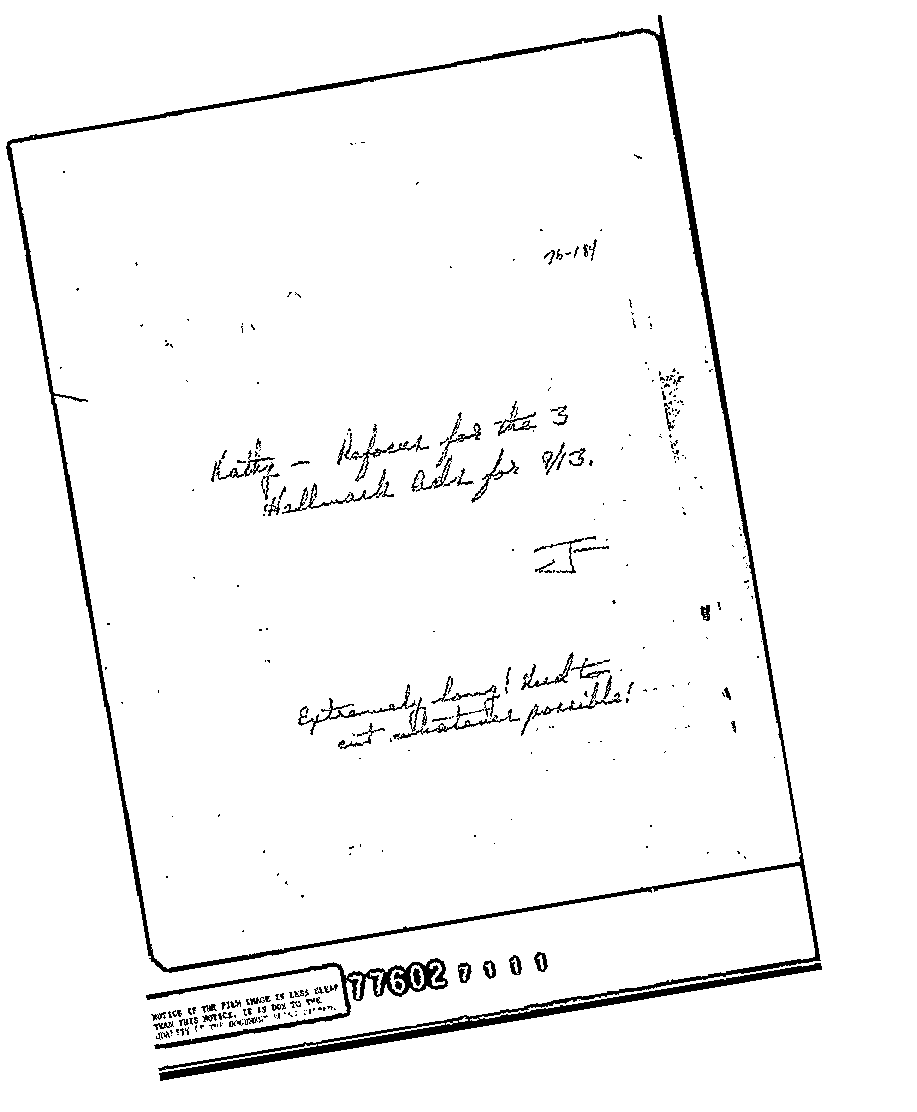 76-184
Kathy – Refocus for the 3
Hallmark Ads for 9/13.
JF
Extremely long! Need to
cut whatever possible!
77602 7111
NOTICE IF THE FILM IMAGE IS LESS CLEAR
THAN THIS NOTICE, IT IS DUE TO THE
QUALITY OF THE DOCUMENT